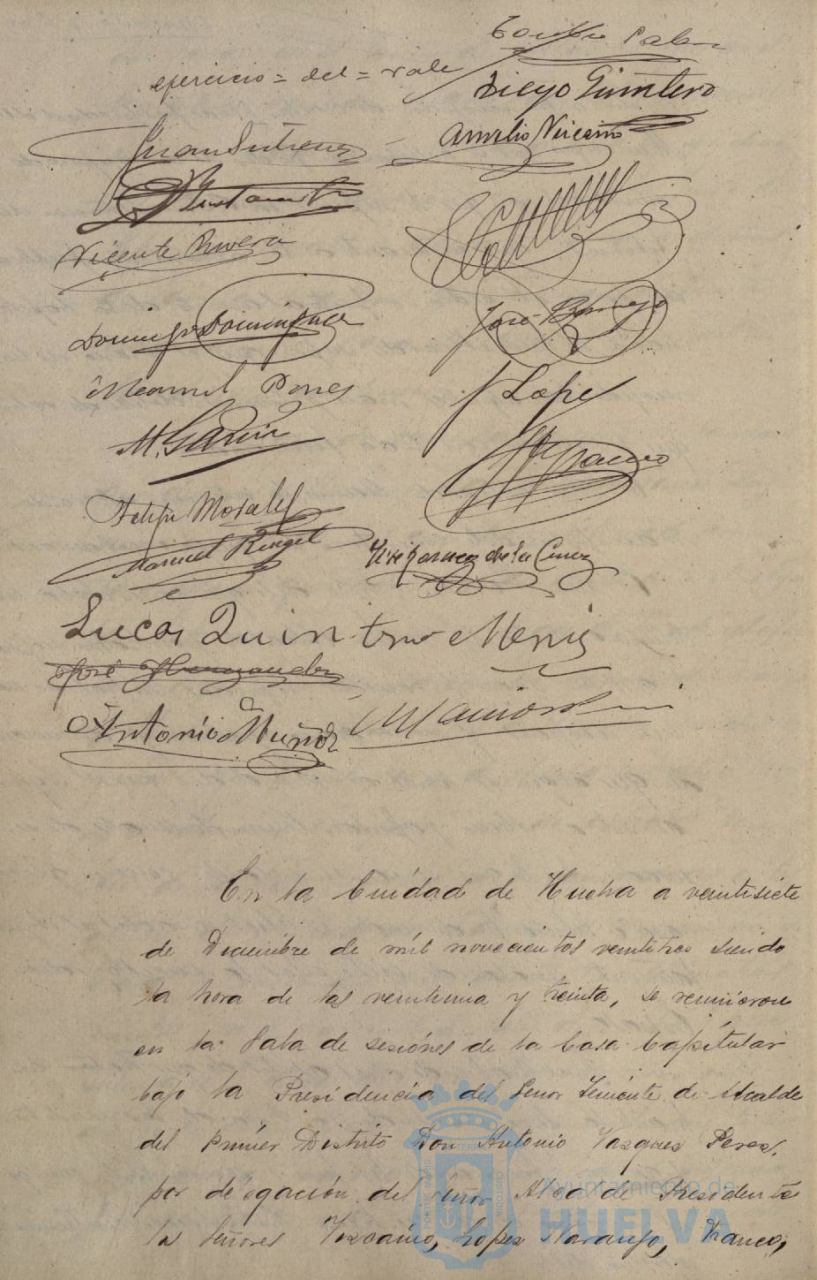 ejercicio = del = vale
Diego Quintero
Juan Gutierrez
Aurelio Vizcaino
Vicente Rivera
Domingo Dominguez
José Borrego
Manuel Ponce
J Lopez
M. Garcia
Felipe Morales
Manuel Rengel
de la Cruz
Lucas Quintero Merin
José Hernandez
Antonio Muñoz
En la Ciudad de Huelva a veintisiete
de Diciembre de mil novecientos veintitres siendo
la hora de las veintiuna y treinta, se reunieron
en la Sala de sesiónes de la Casa Capitular
bajo la Presidencia del Señor Teniente de Alcalde
del primer Distrito Don Antonio Vazquez Perez,
por delegación del Señor Alcalde Presidente
los Señores Vizcaino, Lopez Naranjo, Franco,
Ayuntamiento de
HUELVA